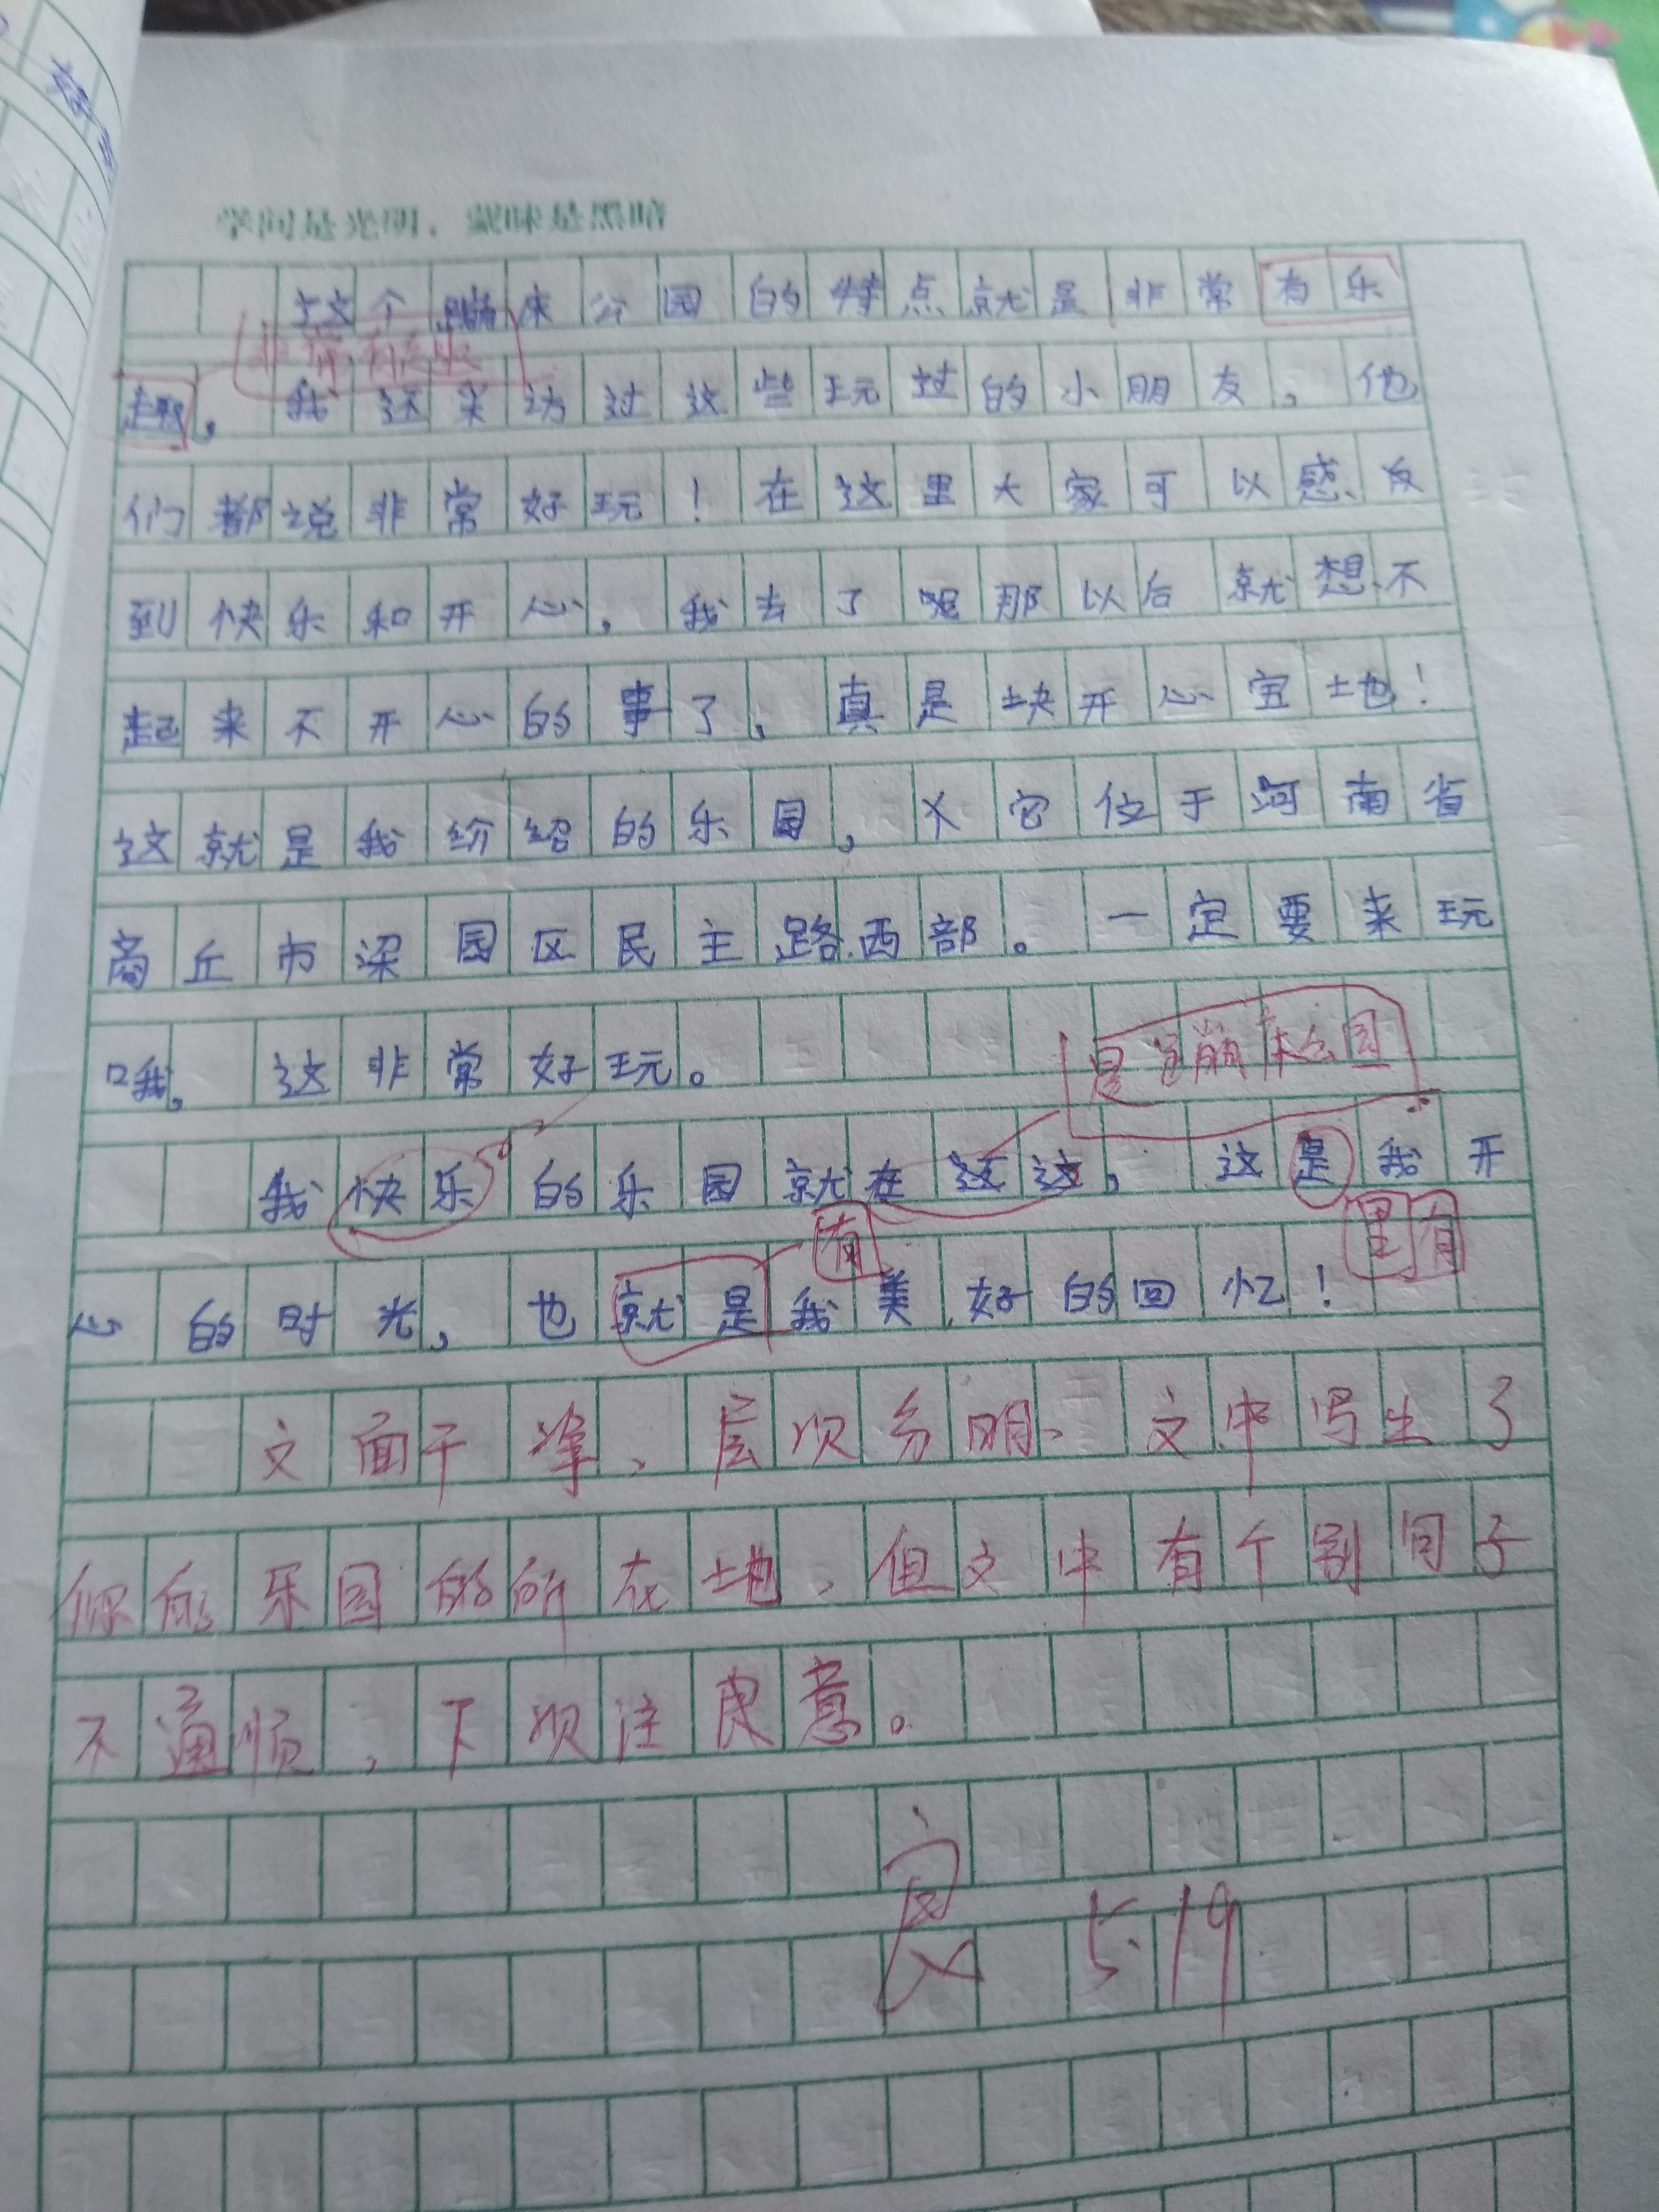 好
学问是光明，蒙昧是黑暗
这个蹦床公园的特点就是非常有乐
非常
趣，我还采访过这些玩过的小朋友，他
们都说非常好玩！在这里大家可以感及
到快乐和开心，我去了那以后就想不
起来不开心的事了，真是块开心宝地！
这就是我给绍的乐园，它位于河南省
商丘市梁园区民主路西部。一定要来玩
哦，这非常好玩。
是蹦床公园
我快乐的乐园就在这这，这是我开
有 里有
心的时光，也就是我美好的回忆！
文面干净、层次分明、文中写出了
你的乐园的所在地，但文中有个别句子
不通顺，下次注意。
5.19